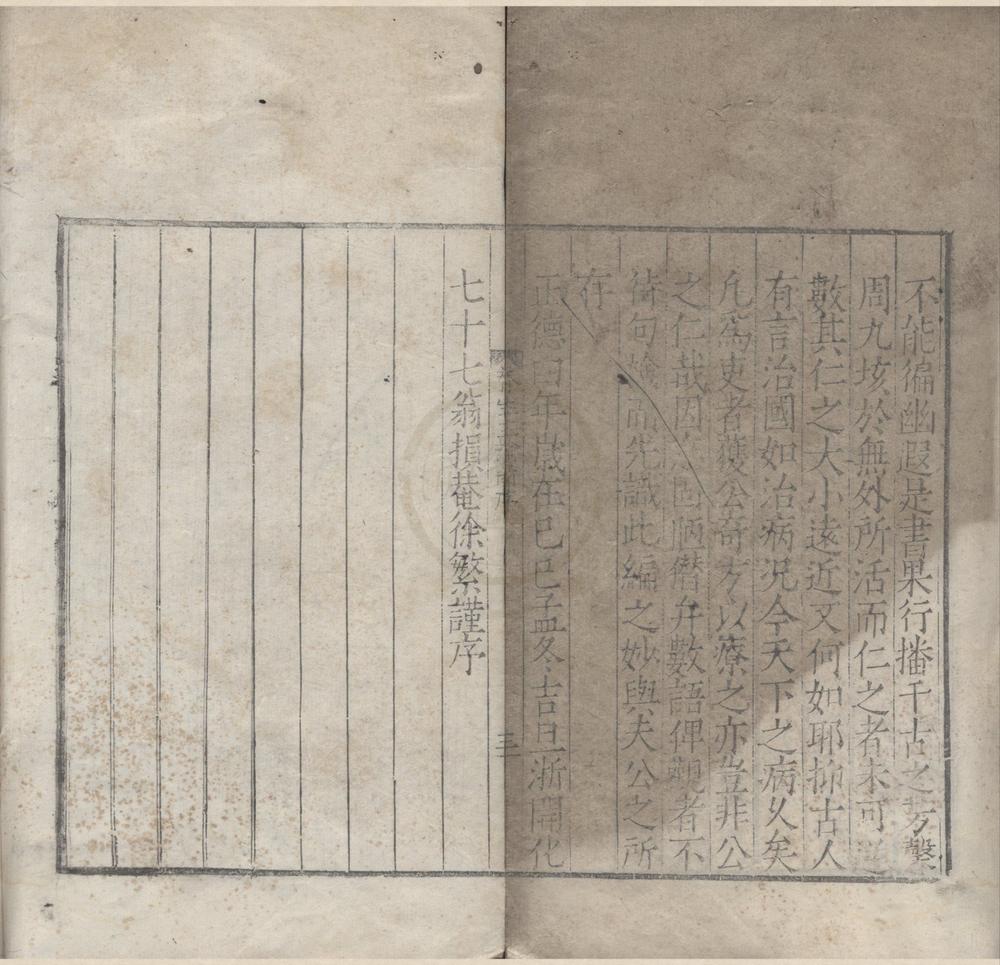 不能徧幽遐是書果行播千古之芳馨
周九垓於無外所活而仁之者未可
數其仁之大小遠近又何如耶抑古人
有言治國如治病况今天下之病久矣
凡爲吏者獲公竒方以療之亦豈非公
之仁哉因陋僭弁數語俾觀者不
徇句而先識此編之妙與夫公之所
存
正德四年歲在己巳孟冬吉旦浙開化
七十七翁損菴徐繁謹序
三